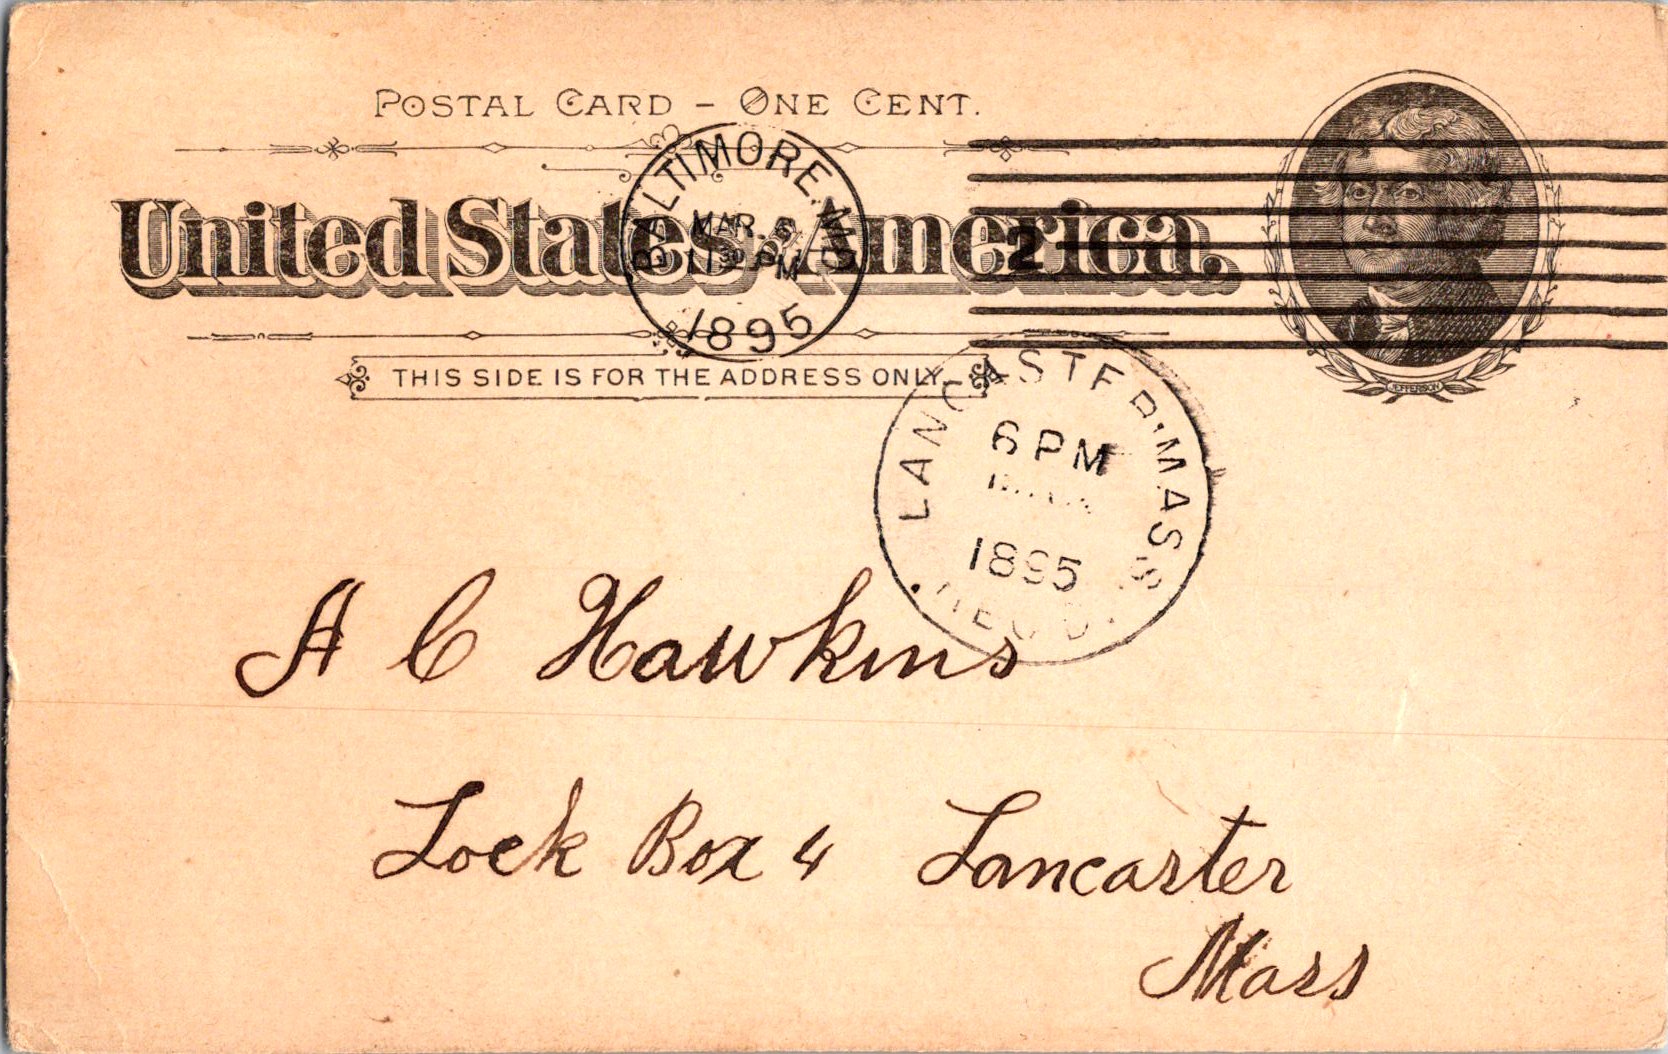 POSTAL CARD - ONE CENT.
United States of America.
THIS SIDE IS FOR THE ADDRESS ONLY.
JEFFERSON
BALTIMORE. MD
MAR. 5
11 30 PM
1895
2
LANCASTER. MASS
6 PM
1895
REC'D.
A C Hawkins
Lock Box 4 Lancaster
Mass